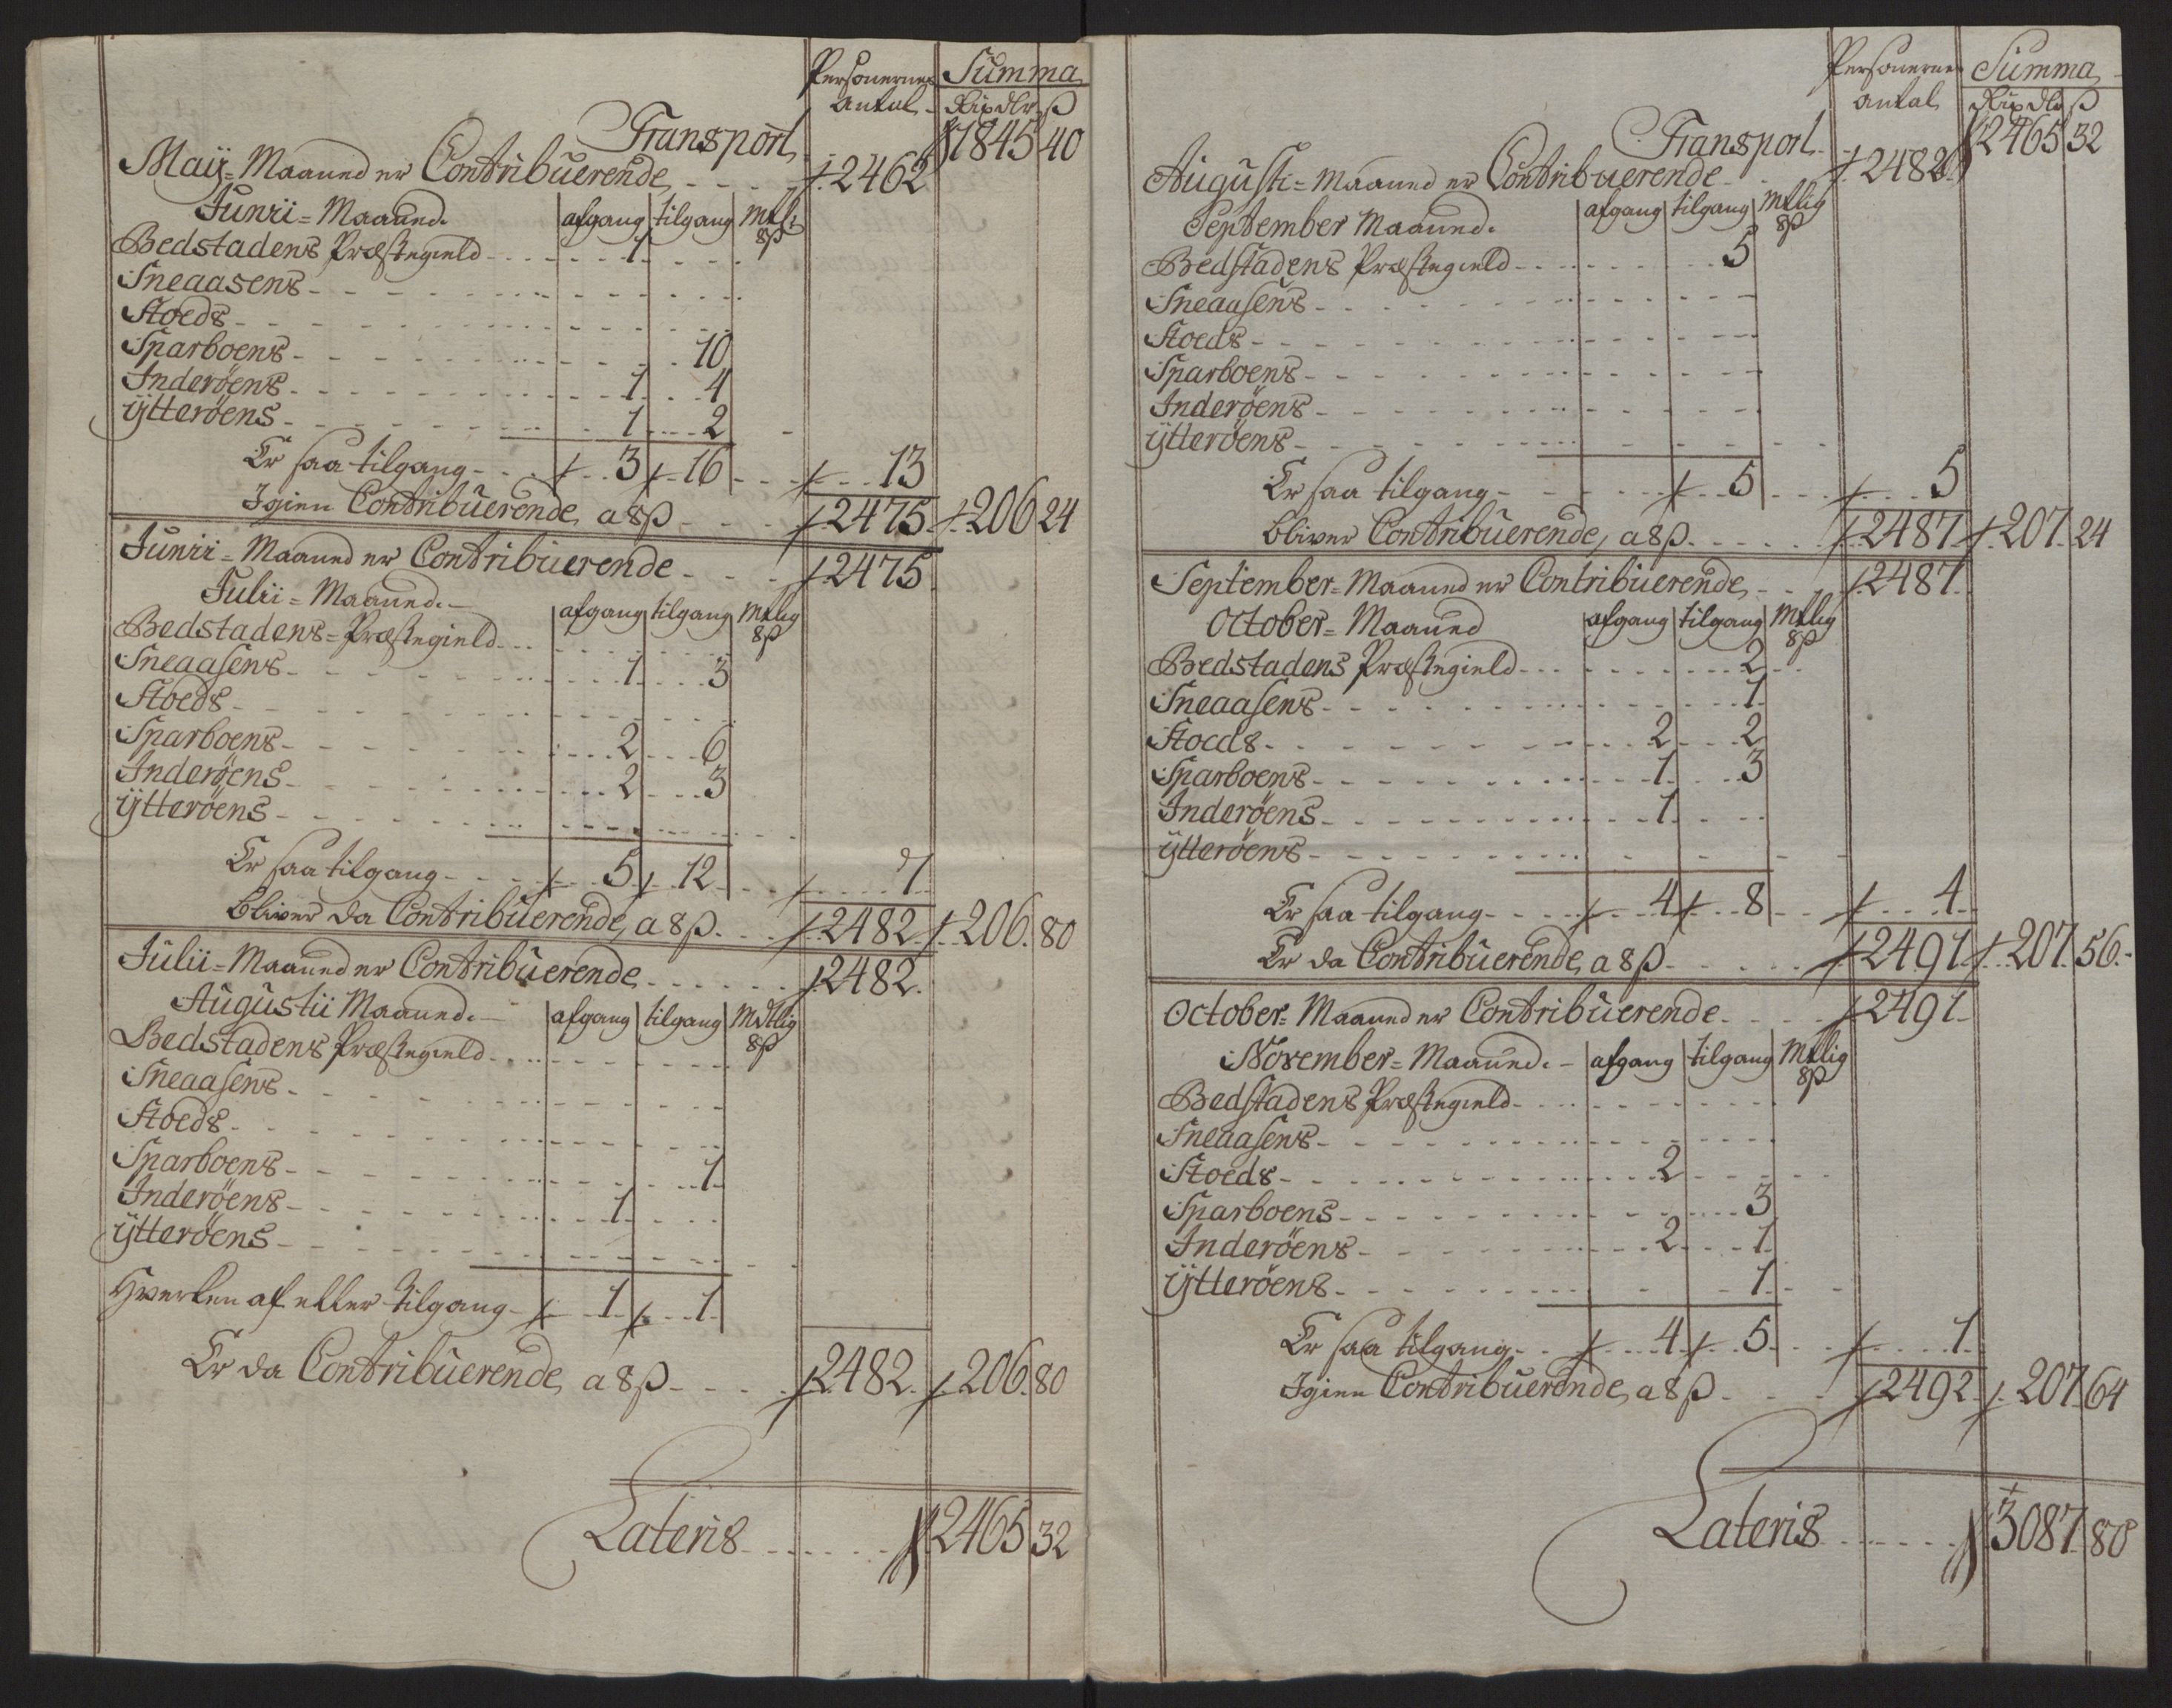 Personernes Summa
Antal Rixdlr ß
Transport 1845 40
Maÿ = Maaned er Contribuerende 2462
Junii = Maaned. afgang tilgang Mtl:
8 ß
Bedstadens Præstegield 1
Sneaasens
Stoeds
Sparboens 10
Inderøens 1 4
Ÿtterøens 1 2
Er saa tilgang 3 16 13
Igien Contribuerende, a 8 ß 2475 206 24
Junii = Maaned er Contribuerende 2475
Julii = Maaned. afgang tilgang Mtlig
8 ß
Bedstadens = Præstegield
Sneaasens 1 3
Stoeds
Sparboens 2 6
Inderøens 2 3
Ÿtterøens
Er saa tilgang 5 12 7
bliver da Contribuerende, a 8 ß 2482 206 80
Julii = Maaned er Contribuerende 2482
Augustii Maaned. afgang tilgang Mdtlig
8 ß
Bedstadens Præstegield
Sneaasens
Stoeds
Sparboens 1
Inderøens 1
Ÿtterøens
Hverken af eller tilgang 1 1
Er da Contribuerende, a 8 ß 2482 206 80
Lateris 2465 32
Personernes Summa
Antal Rixdlr ß
Transport 2465 32
Augusti = Maaned er Contribuerende 2482
September Maaned. afgang tilgang Mtlig
8 ß
Bedstadens Præstegield 5
Sneaasens
Stoeds
Sparboens
Inderøens
Ÿtterøens
Er saa tilgang 5 5
bliver Contribuerende, a 8 ß 2487 207 24
September = Maaned er Contribuerende 2487
October = Maaned afgang tilgang Mtlig
8 ß
Bedstadens Præstegield 2
Sneaasens 1
Stoeds 2 2
Sparboens 1 3
Inderøens 1
Ÿtterøens
Er saa tilgang 4 8 4
Er da Contribuerende, a 8 ß 2491 207 56
October = Maaned er Contribuerende 2491
November = Maaned. afgang tilgang Mtlig
8 ß
Bedstadens Præstegield
Sneaasens
Stoeds 2
Sparboens 3
Inderøens 2 1
Ÿtterøens 1
Er saa tilgang 4 5 1
Igien Contribuerende, a 8 ß 2492 207 64
Lateris 3087 80